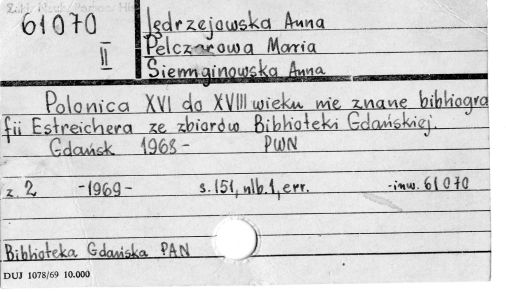 61070
II
Jędrzejowska Anna
Pelczarowa Maria
Siemiginowska Anna
Polonica XVI do XVIII wieku nie znane bibliogra
fii Estreichera ze zbiorów Biblioteki Gdańskiej.
Gdańsk 1968- PWN
z. 2 -1969- s. 151, nlb. 1, err. -inw. 61070
Biblioteka Gdańska PAN
DUJ 1078/69 10.000